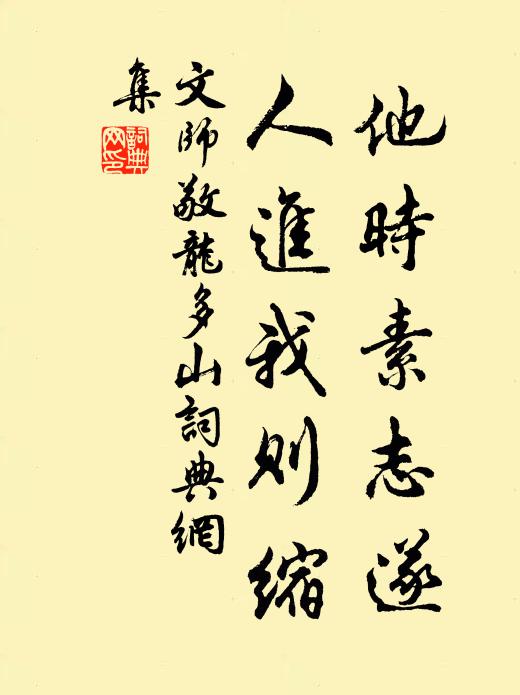 他時素志遂
人進我則縮
文師敬龍多山詞典網
集
詞典
网印